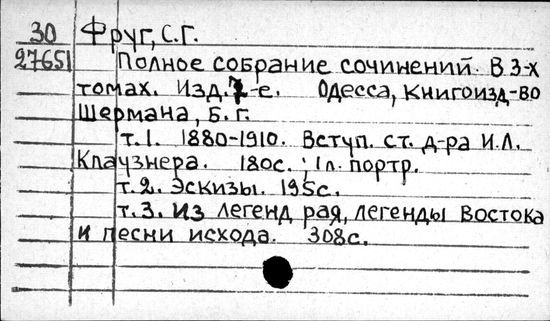 30 Фруг, С.Г.
27651 Полное собрание сочинений. В 3-х
томах. Изд. 7-е. Одесса, Книгоизд-во
Шермана, Б. г.
т. 1. 1880-1910. Вступ. ст. д-ра И.Л.
Клаузнера. 180с.; 1л. портр.
т. 2. Эскизы. 195с.
т. 3. Из легенд рая, легенды Востока
и песни исхода. 308с.